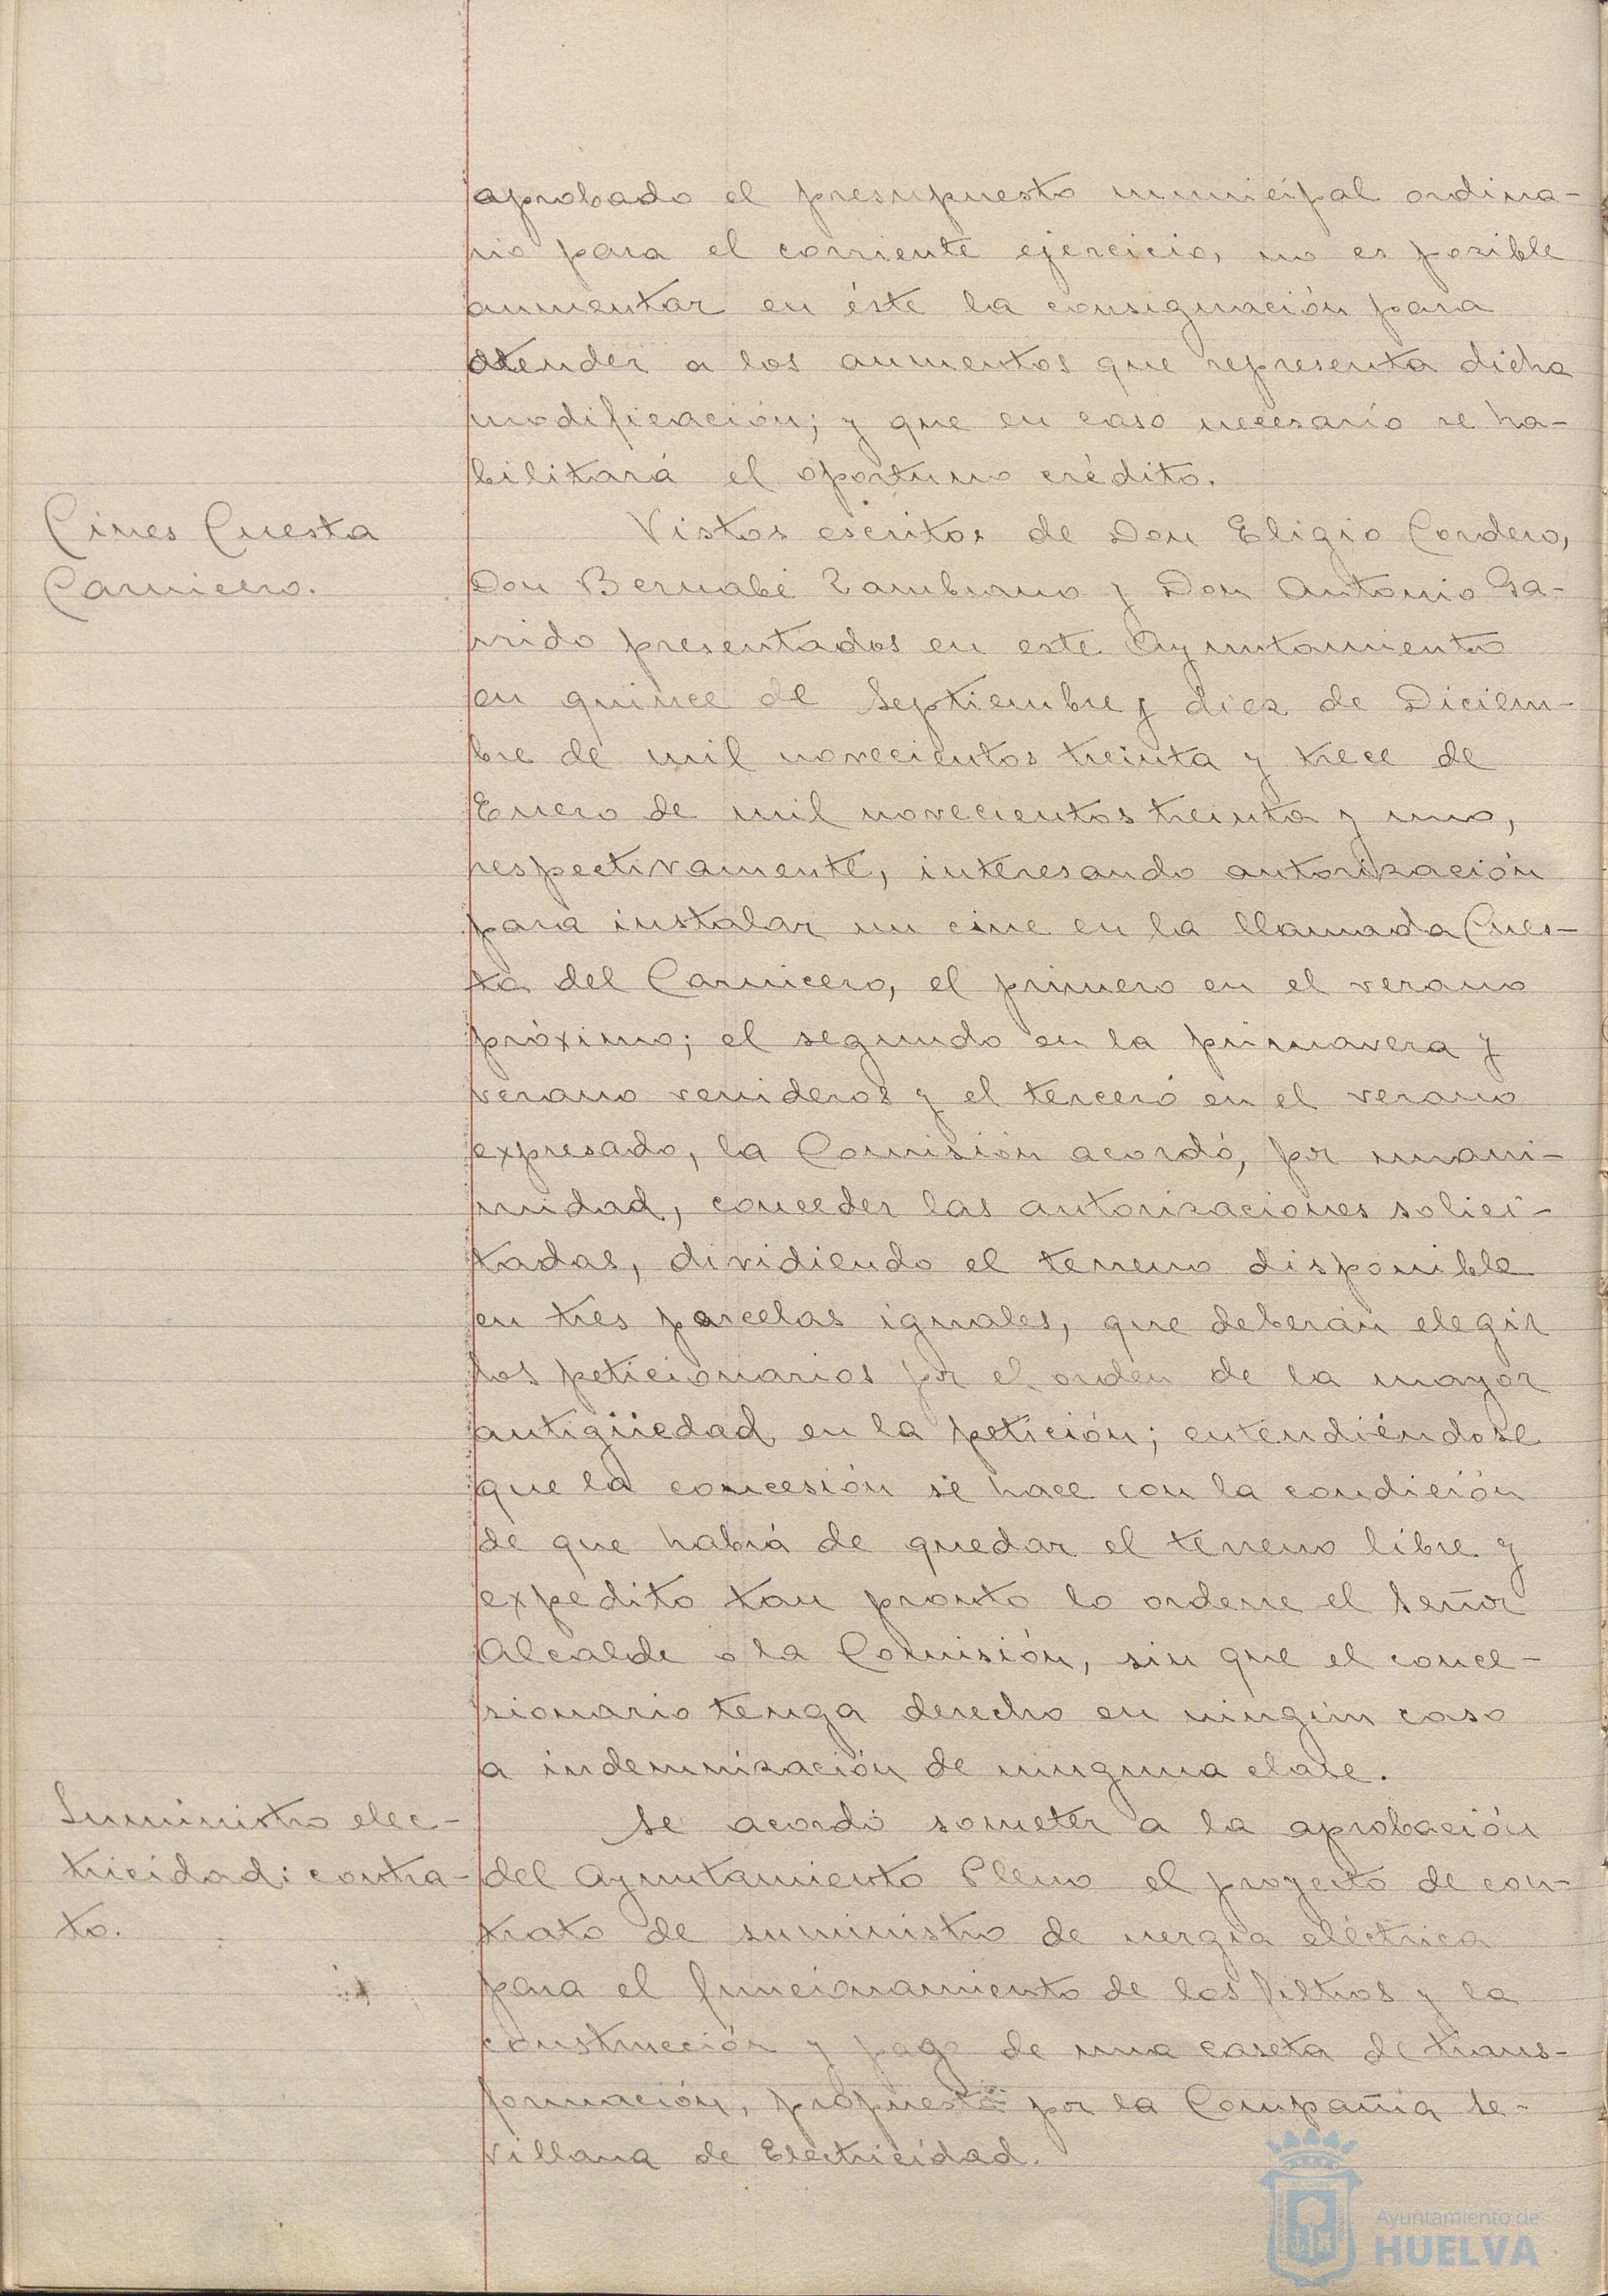 aprobado el presupuesto municipal ordina-
rio para el corriente ejercicio, no es posible
aumentar en éste la consignación para
atender a los aumentos que representa dicha
modificación; y que en caso necesario se ha-
bilitará el oportuno crédito.
Cines Cuesta
Carnicero.
Vistos escritos de Don Eligio Cordero,
Don Bernabé Zambrano y Don Antonio Ga-
rrido presentados en este Ayuntamiento
en quince de Septiembre y diez de Diciem-
bre de mil novecientos treinta y trece de
Enero de mil novecientos treinta y uno,
respectivamente, interesando autorización
para instalar un cine en la llamada Cues-
ta del Carnicero, el primero en el verano
próximo; el segundo en la primavera y
verano venideros y el tercero en el verano
expresado, la Comisión acordó, por unani-
midad, conceder las autorizaciones solici-
tadas, dividiendo el terreno disponible
en tres parcelas iguales, que deberán elegir
los peticionarios por el orden de la mayor
antigüedad en la petición; entendiéndose
que la concesión se hace con la condición
de que habrá de quedar el terreno libre y
expedito tan pronto lo ordene el Señor
Alcalde o la Comisión, sin que el conce-
sionario tenga derecho en ningún caso
a indemnización de ninguna clase.
Suministro elec-
tricidad: contra-
to.
Se acordó someter a la aprobación
del Ayuntamiento Pleno el proyecto de con-
trato de suministro de nergía eléctrica
para el funcionamiento de los filtros y la
construcción y pago de una caseta de trans-
formación, propuesto por la Compañía Se-
villana de Electricidad.
Ayuntamiento de
HUELVA